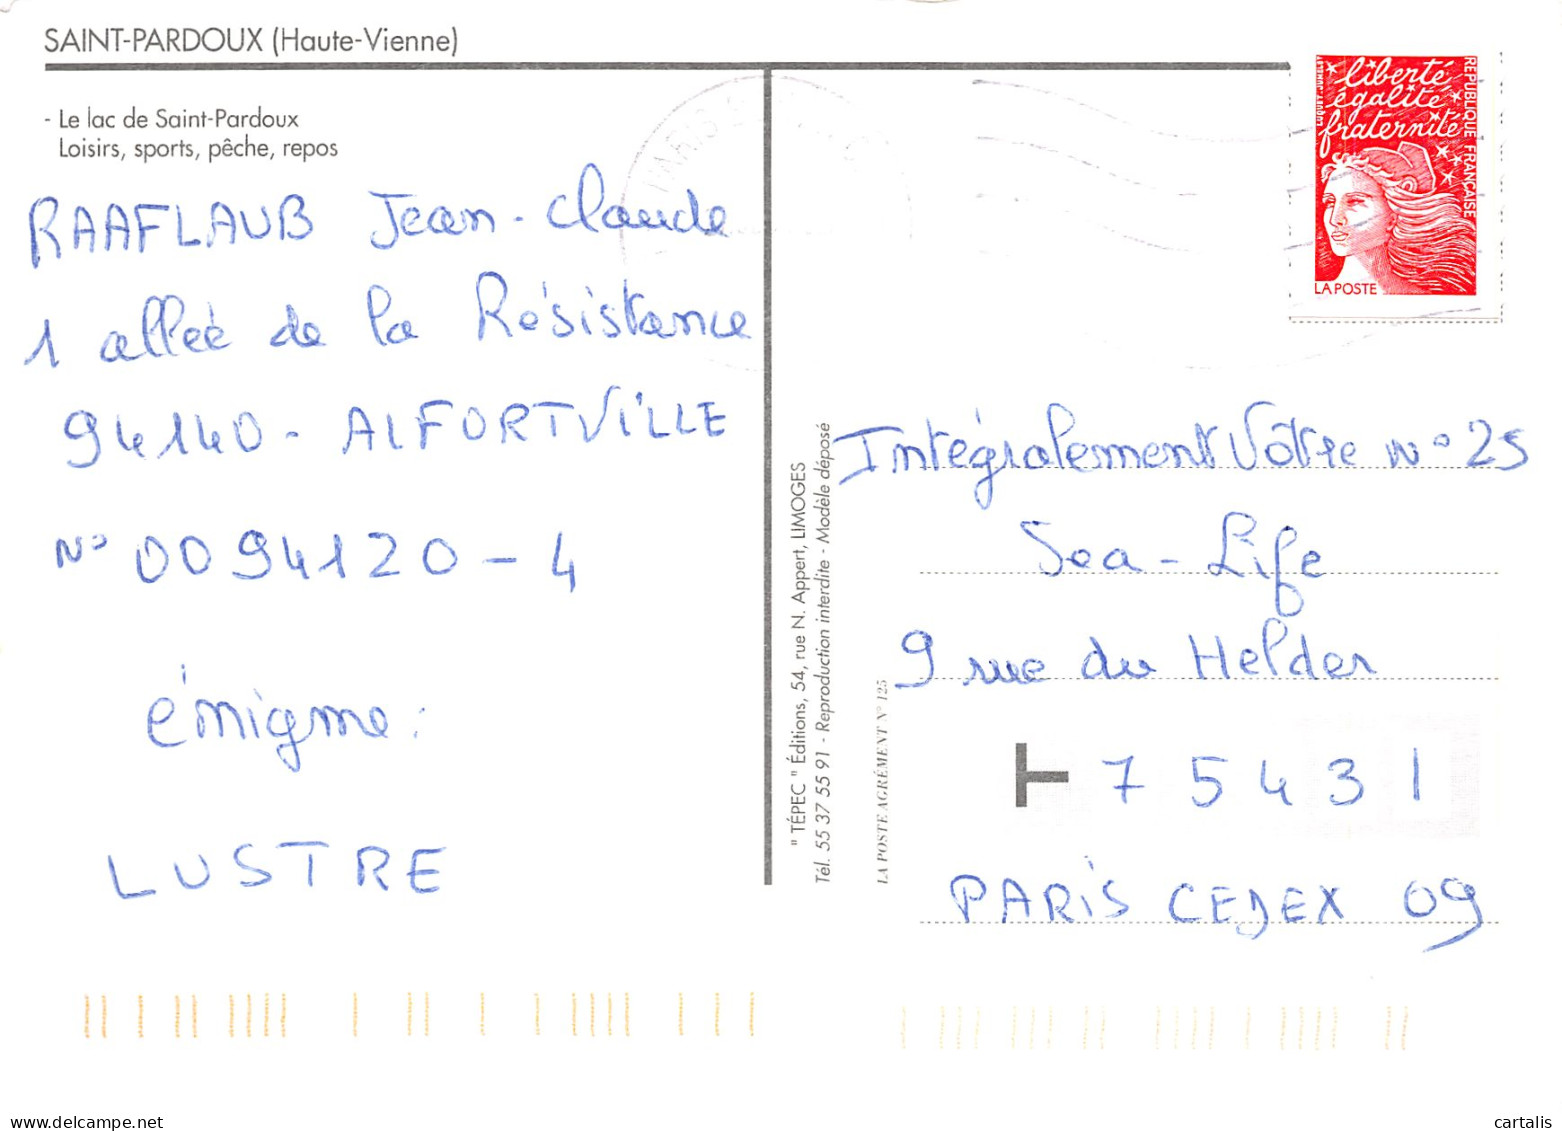 SAINT-PARDOUX (Haute-Vienne)
- Le lac de Saint-Pardoux
Loisirs, sports, pêche, repos
RAAFLAUB Jean-Claude
1 allée de la Résistance
94140 - ALFORTVILLE
N° 0094120-4
énigme:
LUSTRE
" TÉPEC " Éditions, 54, rue N. Appert, LIMOGES
Tél. 55 37 55 91 - Reproduction interdite - Modèle déposé
LA POSTE AGRÉMENT N° 125
PARIS
liberté
égalité
fraternité
RÉPUBLIQUE FRANÇAISE
LA POSTE
Intégralement Vôtre n° 25
Sea-Life
9 rue du Helder
75431
PARIS CEDEX 09
www.cartalis.com